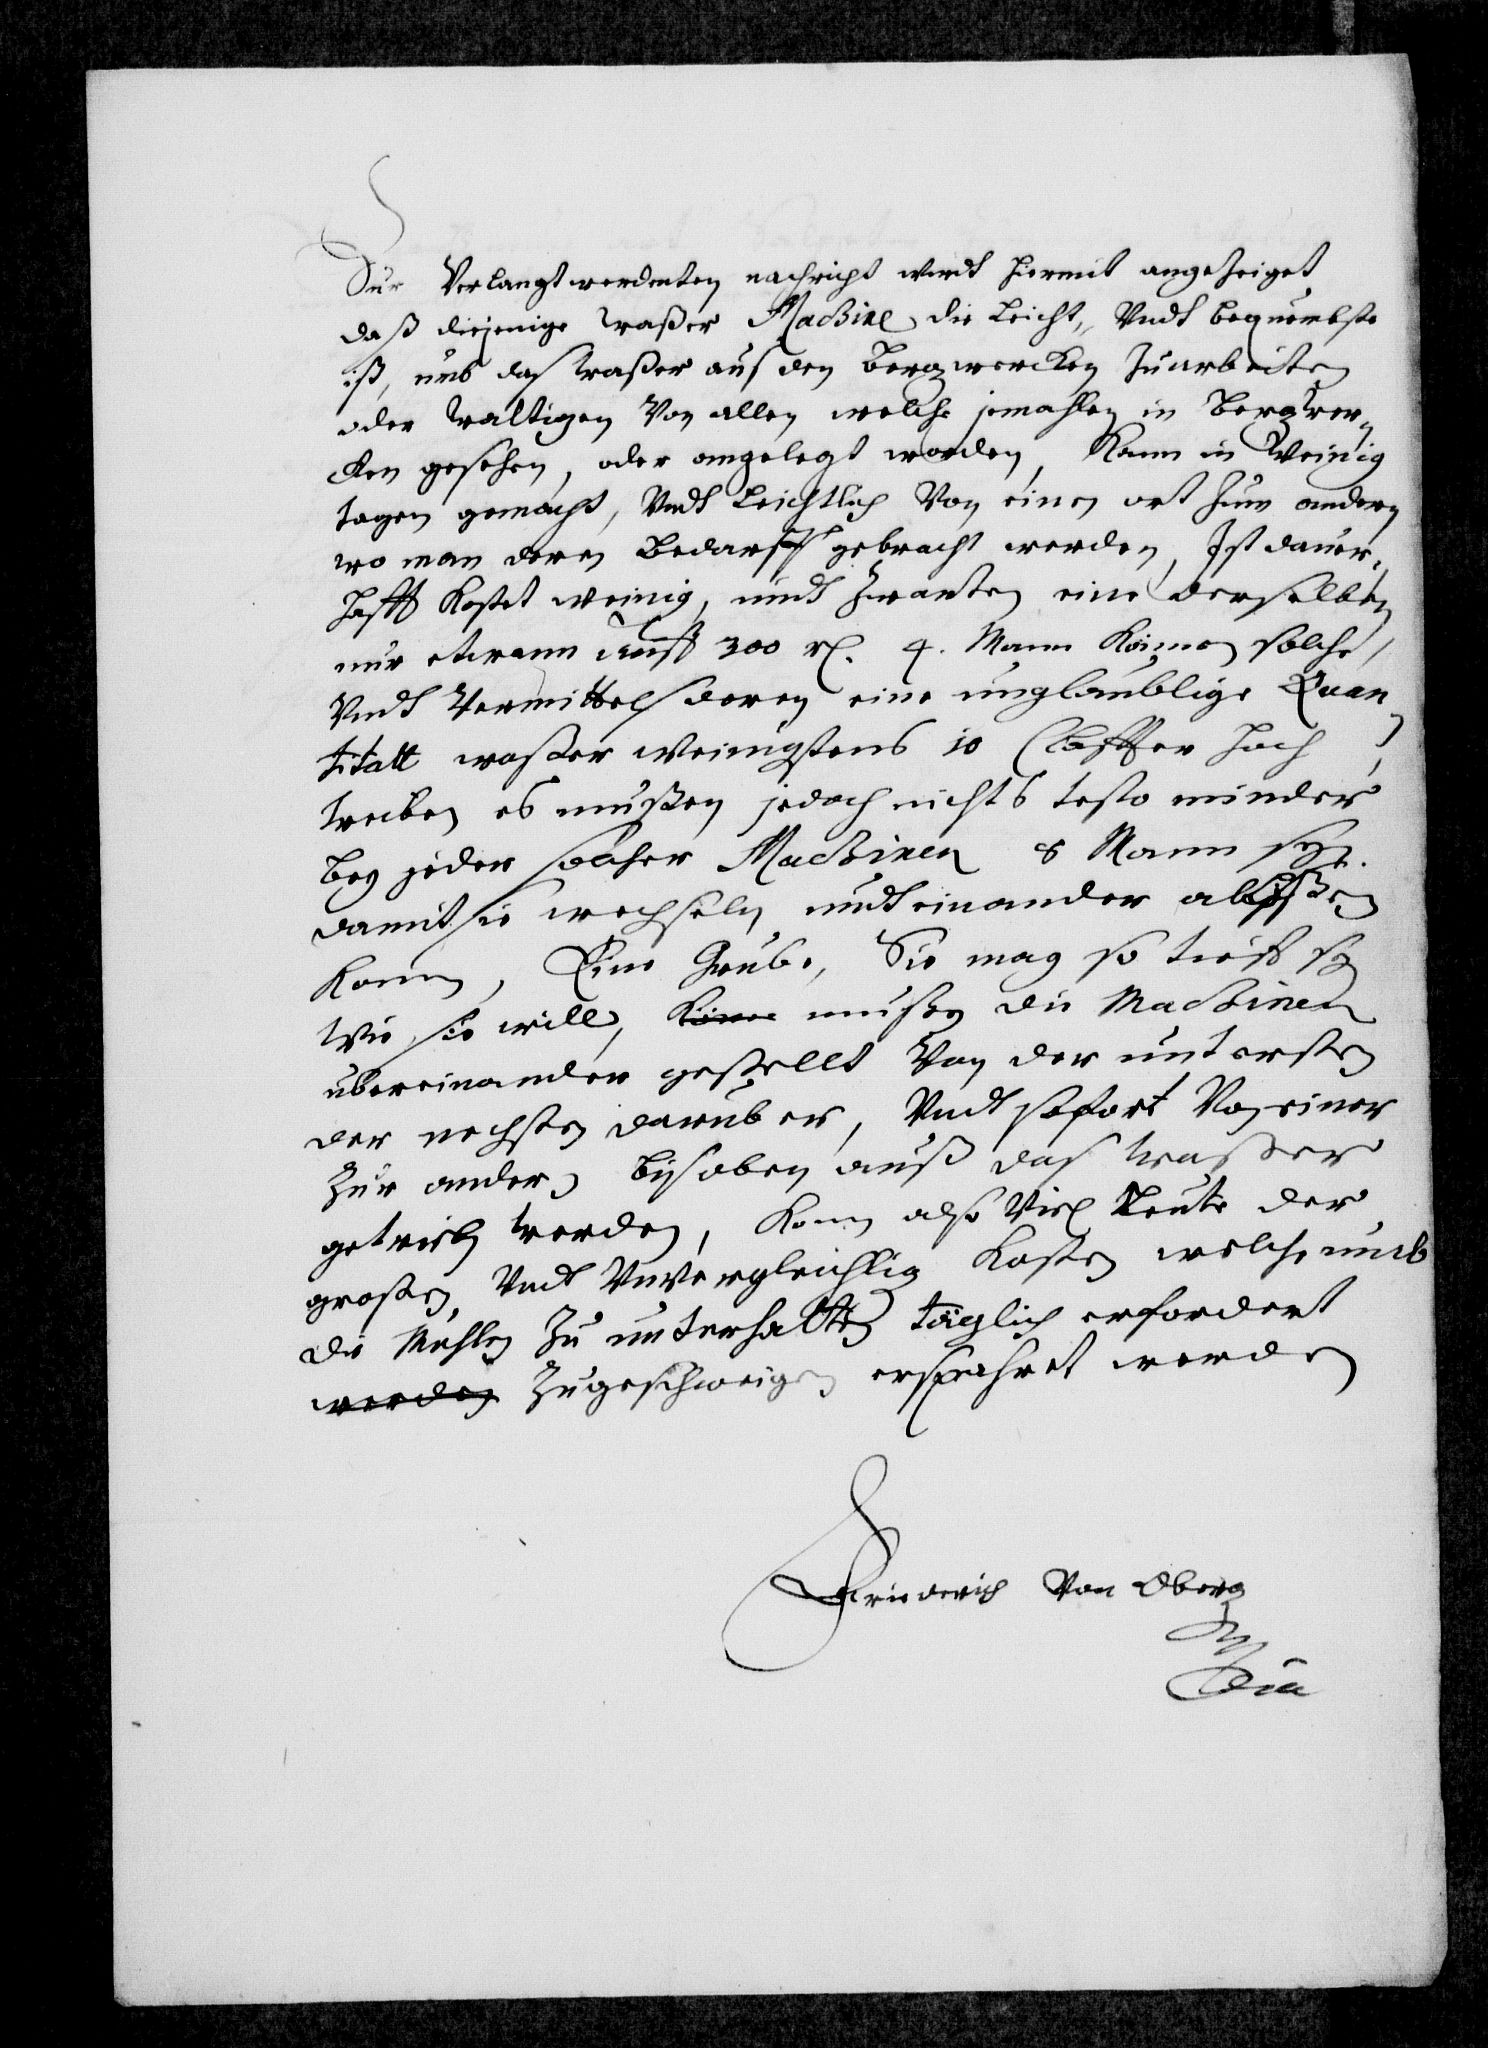 Zur Verlangt werdenten nachricht wirdt hiermit angezeiget
daß diejenige waßer Machine die Leicht, Vndt bequembste
ist, umb das waßer aus den Bergwercken zuarbeiten
oder waltigen Von allen welche jemahlen in Bergwer-
cken gesehen, oder angelegt worden, Kann in Weinig
tagen gemacht, Vndt Leichtlich Von einen ort zum andern
wo man deren Bedarff gebracht werden, Ist dauer-
hafft Kostet weinig, undt zwarten eine derselben
nur etwann auff 300 rl. 4. Mann Könne solche,
Vndt Vermittels deren eine unglaublige Quan-
titatt waßer Weinigstens 10 Claffter hoch
treiben es mußen jedoch nichts testo minder
bey jeder solcher Machinen 8 Mann sey.
damit sie wechseln undt einander ableßen
Konn, Eine Grube, Sie mag so tieff sey
Wie sie will, Könne mußen die Machinen
ubereinander gestellt Von der untersten
der nechsten daruber, Vndt sofort Von einer
Zur andern biß oben auß das waßer
getrieben werden, Konn also Viel Leute der
großen, Vndt Vnvergleichlig Kosten welche umb
die Mühlen Zu unterhalten täglich erfordert
werden Zugeschweigen ersparhret werden
Friederich Von Oberg